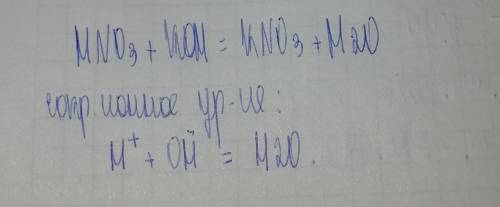 HNO3 + KOH = KNO3 + H2O
сокр. ионное ур-ие:
H⁺ + OH⁻ = H2O.